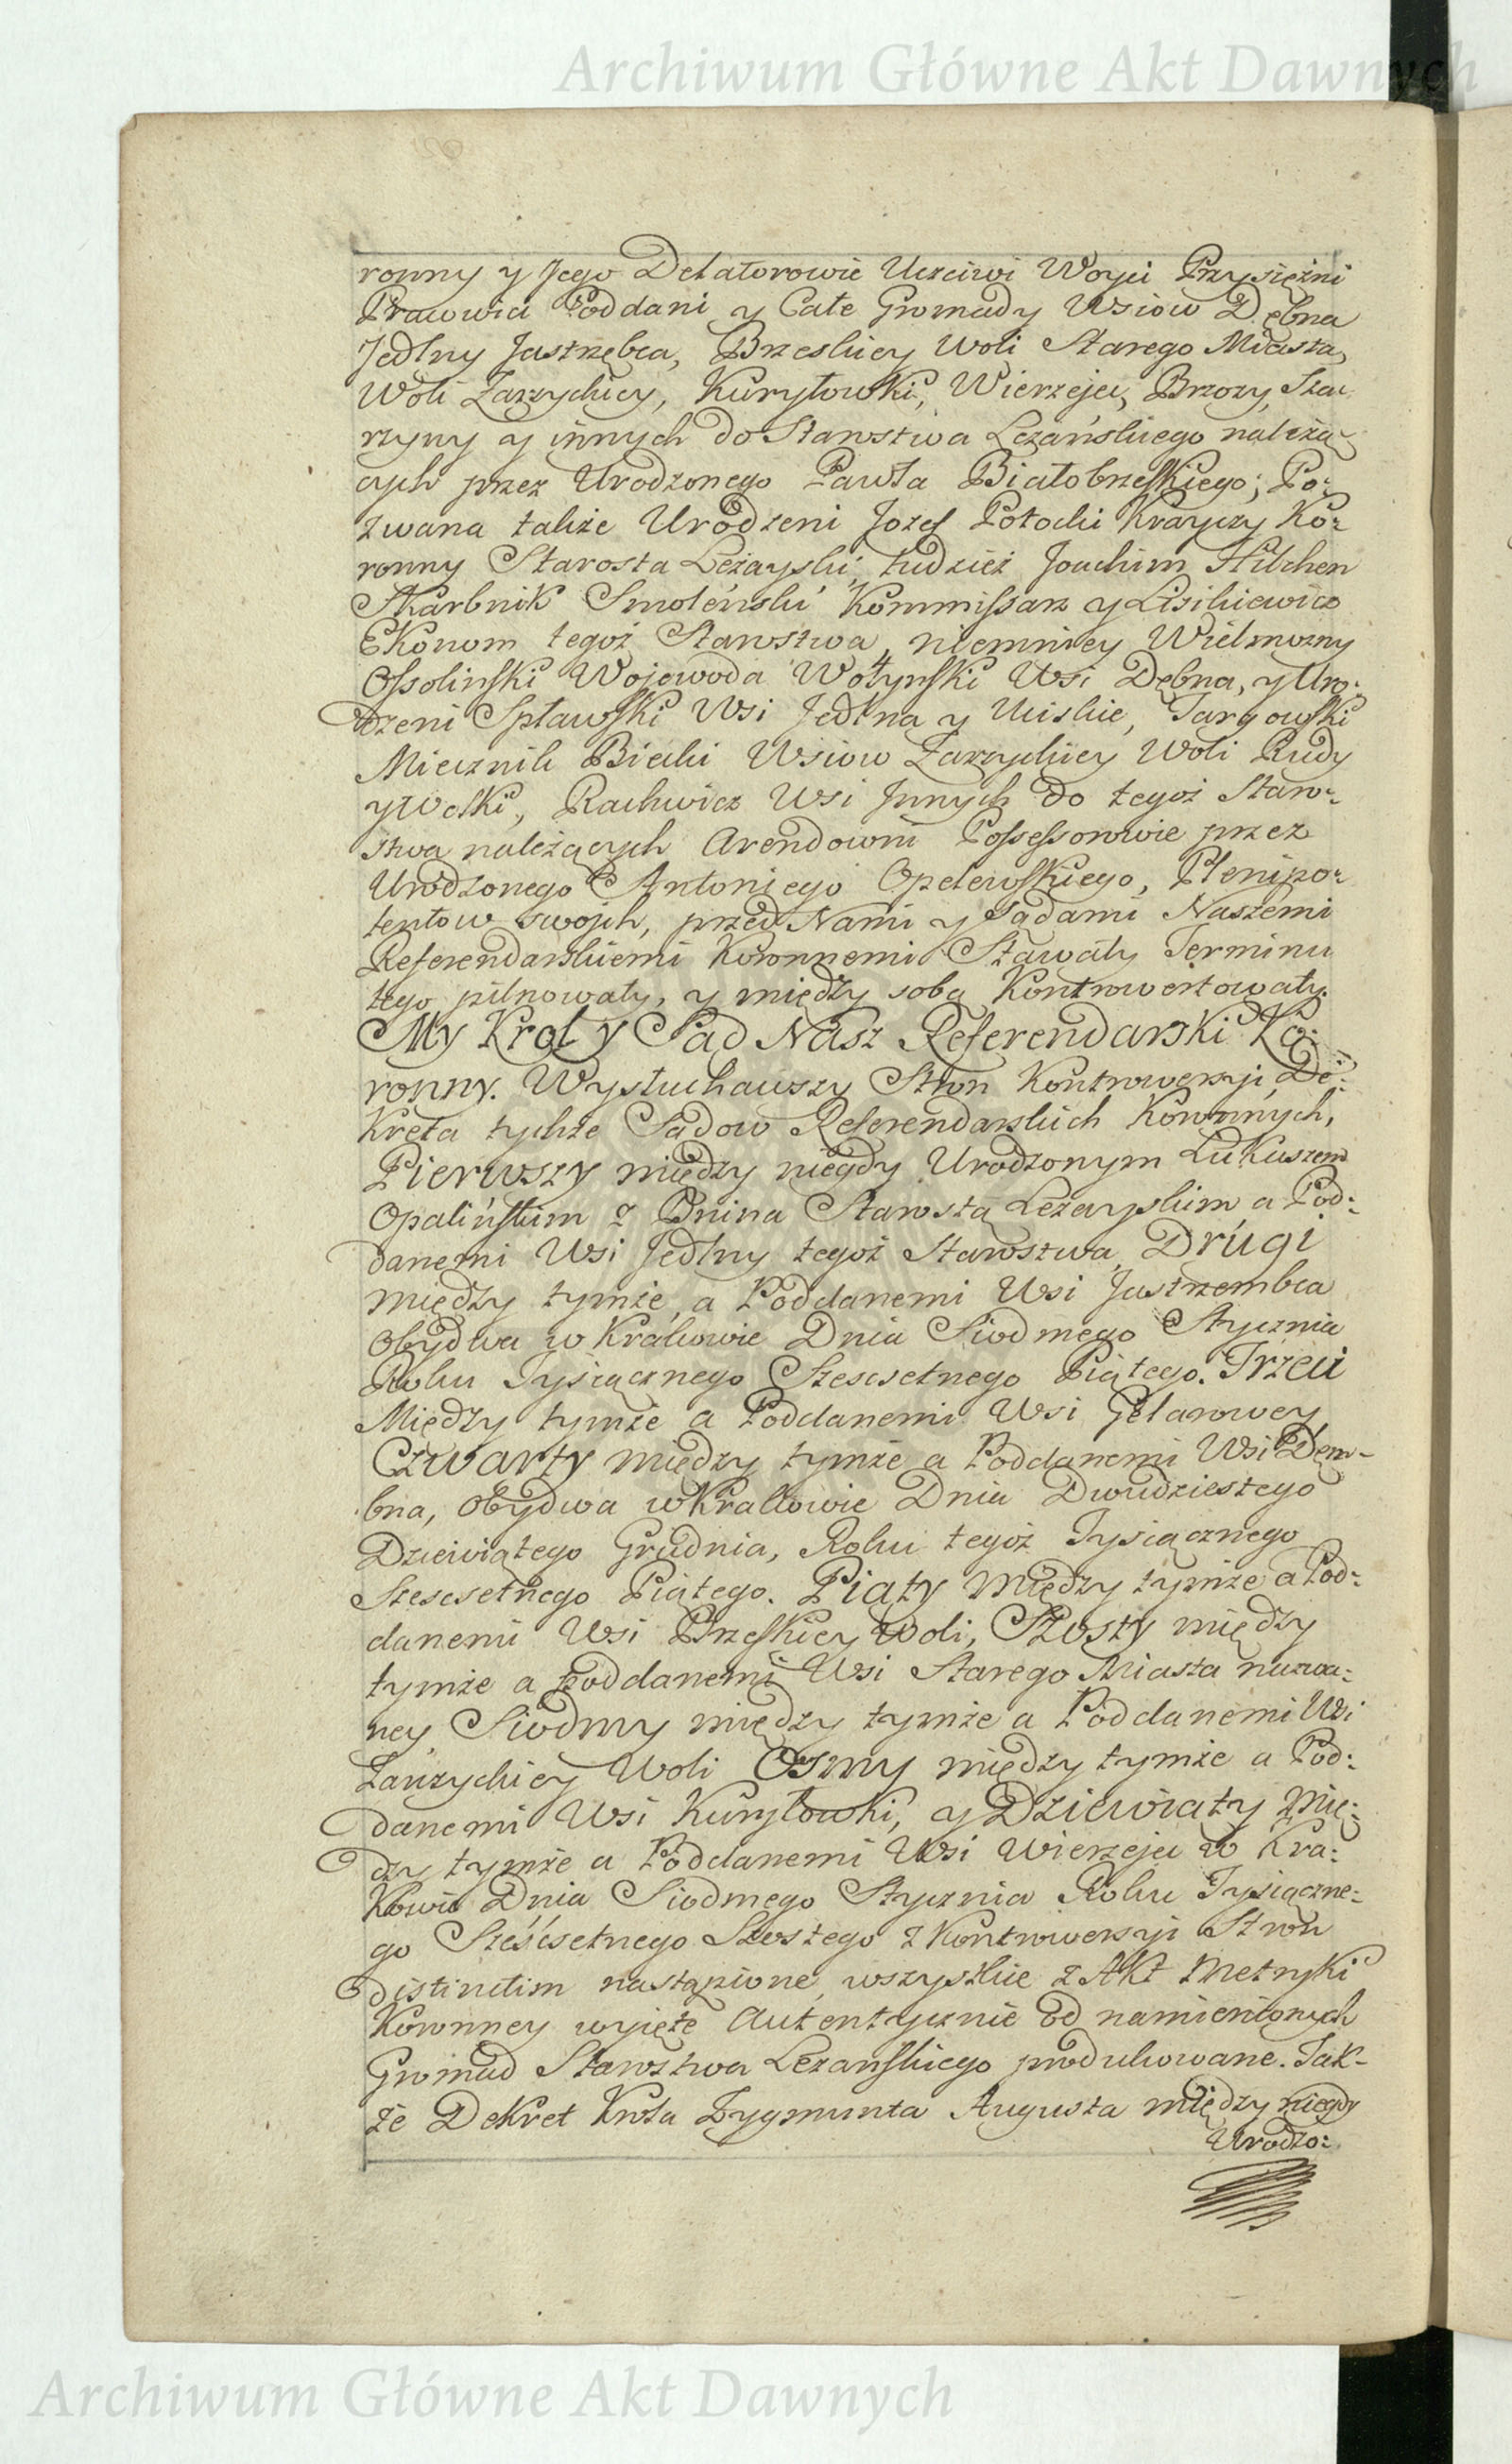 Archiwum Główne Akt Dawnych
ronny y Jego Delatorowie Uczciwi Woyci Przysiężni
Prawowici Poddani y Całe Gromady Wsiow Dębna
Jedlny Jastrzębca, Brzeskiey Woli Starego Miasta,
Woli Zarzyckiey, Kuryłowki, Wierzejec, Brzozy, Star
rzyny y innych do Starostwa Leżańskiego należą
cych przez Urodzonego Pawła Białobrzeskiego; Po:
zwana także Urodzeni Jozef Potocki Krayczy Ko:
ronny Starosta Leżayski, tudzież Joachim Hilchen
Skarbnik Smoleński Kommissarz y Lisikiewicz
Ekonom tegoż Starostwa, niemniey Wielmożny
Ossolinski Wojewoda Wołynski Wsi Dębna, y Uro:
dzeni Spławski Wsi Jedlna y Uiskie, Targowski
Miecznik Biecki Wsiow Zarzyckiey Woli Rudy
y Wolki, Rachwicz Wsi Jnnych do tegoż Staro:
stwa należących Arendowni Possessorowie przez
Urodzonego Antoniego Opelewskiego, Plenipo:
tentow swojch, przed Nami y Sądami Naszemi
Referendarskiemi Koronnemi Stawały Terminu
tego pilnowały, y między sobą Kontrowertowały.
My Krol y Sąd Nasz Referendarski Ko:
ronny. Wysłuchawszy Stron Kontrowersyi, De:
Kreta tychże Sądow Referendarskich Koronnych,
Pierwszy między niegdy Urodzonym Łukaszem
Opalińskim z Bnina Starostą Leżayskim a Pod:
danemi Wsi Jedlny tegoż Starostwa, Drugi
między tymże, a Poddanemi Wsi Jastrzembca
Obydwa w Krakowie Dnia Siodmego Stycznia
Roku Tysiącznego Szescsetnego Piątego. Trzeci
Między tymże a Poddanemi Wsi Gelarowey
Czwarty między tymże a Poddanemi Wsi Dem-
bna, Obydwa w Krakowie Dnia Dwudziestego
Dziewiątego Grudnia, Roku tegoż Tysiącznego
Szescsetnego Piątego. Piąty między tymże a Pod:
danemi Wsi Brzeskiey Woli, Szosty między
tymże a Poddanemi Wsi Starego Miasta nazwa:
ney, Siodmy między tymże a Poddanemi Wsi
Zarzyckiey Woli Osmy między tymże a Pod:
danemi Wsi Kuryłowki, y Dziewiąty Mię:
dzy tymże a Poddanemi Wsi Wierzejec w Kra:
Kowie Dnia Siodmego Stycznia Roku Tysiączne:
go Sześćsetnego Szostego z Kontrowersyi Stron
distinctim nastąpione, wszystkie z Akt Metryki
Koronney wyięte Autentycznie Od namienionych
Gromad Starostwa Leżanskiego produkowane. Tak-
że Dekret Krola Zygmunta Augusta między niegdy
Urodzo:
Archiwum Główne Akt Dawnych